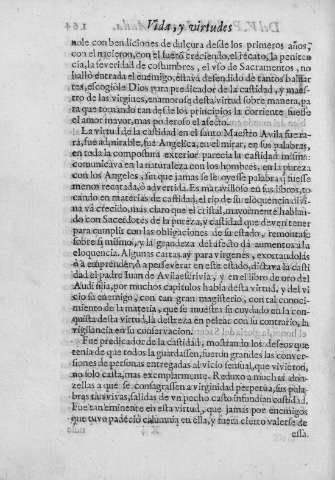 164
Vida, y virtudes
nole con bendiciones de dulçura desde los primeros años,
con el nacieron, con el fueron creciendo, el recato, la peniten
cia, la severidad de costumbres, el vso de Sacramentos, no
halló entrada el enemigo, estava defendido de tantos baluar
tes, escogiòle Dios para predicador de la castidad, y maes-
tro de las virgines, enamoròse desta virtud sobre manera, pa
ra que tomando tan desde los principios la corriente fuesse
el amor mayor, mas poderoso el afecto.
La virtud de la castidad en el santo Maestro Avila fue ra-
ra, fue admirable, fue Angelica, en el mirar, en sus palabras,
en toda la compostura exterior parecia la castidad misma:
comunicava en la naturaleza con los hombres, en la pureza
con los Angeles, sin que jamas se le oyesse palabra, fuesse
menos recatada, ò advertida. Es maravilloso en sus libros, to-
cando en materias de castidad, el rio de su eloquencia divi-
na và crecido, mas claro que el cristal, mayormente hablan-
do con Sacerdotes de la pureza, y virtud que deven tener
para cumplir con las obligaciones de su estado, remontase
sobre si mismo, y la grandeza del afecto dà aumentos a la
eloquencia. Algunas cartas ay para virgenes, exortandolas
ò a emprender, ò a perseverar en este estado, dictava la casti
dad el padre Iuan de Avila escrivia, y en el libro de oro del
Audi filia, por muchos capitulos habla desta virtud, y del vi
cio su enemigo, con tan gran magisterio, con tal conoci-
miento de la materia, que se muestra su cuydado en la con-
quista desta virtud, la destreza en pelear con su contrario, la
vigilancia en su conservacion.
Fue predicador de la castidad, mostrando los deseos que
tenia de que todos la guardassen, fueron grandes las conver-
siones de personas entregadas al vicio sensual, que vivieron,
no solo casta, mas exemplarmente. Reduxo a muchas don-
zellas a que se consagrassen a virginidad perpetua, sus pala-
bras tan vivas, salidas de vn pecho casto infundian castidad.
Fue tan eminente en esta virtud, que jamas por enemigos
que tuvo padeciò calumnia en ella, y fuera cierto valerse de
essa